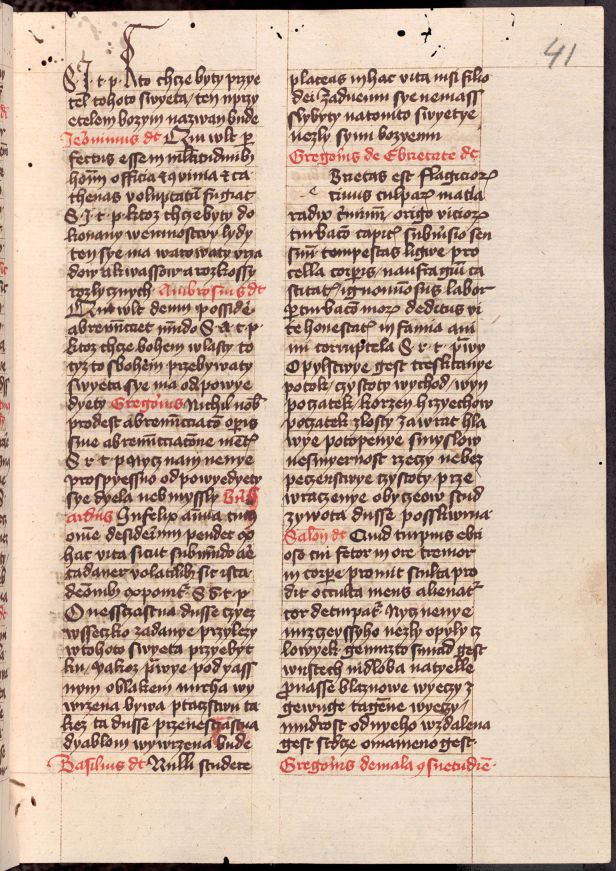 41
S. J. t. p. Kto chcze byty przye
tel tohoto swyeta / ten nprzy
etelem bozym nazwan bude
Jeronimus dt Qui wlt per
fectus esse in
hominum officia
voluptatum fugiat
S. J. t. p. ktoz chcze byty do
konany wemnostwy lydy
ten sye ma warowaty vrza
dow a kwassow a rozkossy
rozlycznych. Ambrosius dt
Qui wlt deum posside
abrenuncciet mundo S. A. t. p.
ktoz chcze bohem wlasty to
tyz to sbohem przebywaty
swyeta sye ma odpowye
dyety Gregorius Nichil nob
prodest abrenunciatio operis
sine abrenunciatione mentis
S. r. t. p. Nycz nam nenye
prospyessno odpowyedyety
sye dyela neb myssly Bern
ardus Infelix anima cuius
omne desiderium pendet ex
hac vita sicut submundo
cadauer volatilibus sic ista
demonibus exponitur. S. b. t. p.
O nesstiastna dusse czyez
wsseczko zadanye przylezy
wtohoto swyeta przyebyt
ku / yakoz prwye pod yass
nym oblakem mrcha wy
wrzena bywa ptaczstwu ta
kez ta dusse przenesstiastna
dyablom wywrzena bude
Basilius dt Nulli studete
placeas in hac vita nisi filio
dei zadnemu sye nemass
slybyty na tomto swyetye
nezly synu bozyemu
Gregorius de Ebrietate dt
Ebrietas est flagicior
culpar matia
radix criminum origo vicior
turbacio capitis subuersio sen
suum tempestas ligwe pro
cella corporis naufragium ca
stitatis / ignominiosus labor
perturbacio morum dedecus vi
te honestatis infamia ani
mi corruptela S. r. t. prwy
Opylstwye gest tresktanye
potok / czystoty wychod / wyn
poczatek / korzen hrzyechow
poczatek zlosty zawrat hla
wye potopenye smyslow
nesmyernost rzeczy nebez
peczenstwye czystoty prze
wraczenye obyczeow stud
zywota dusse posskwrna
Salon dt Quid turpius ebri
oso cui fetor in ore tremor
in corpe promit stulta pro
dit occulta mens alienat
Nycz nenye
mrzczeyssyho nezly opyly cz
lowyek / gemuzto smrad gest
wustech mdloba na tyelle
pronasse blaznowe wyeczy z
gewuge tagene wyeczy
mudrost od nyeho wzdalena
gest srdcze omameno gest.
Gregorius de mala consuetudine.